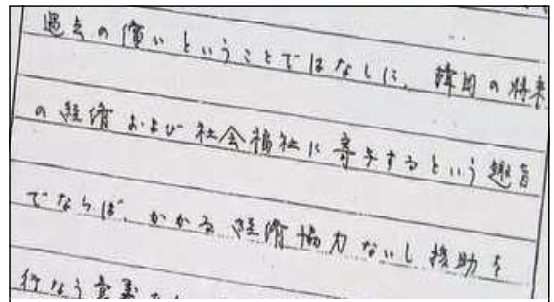 過去の償いということではなしに、韓国の将来
の経済および社会福祉に寄与するという趣旨
でならば、かかる経済協力ないし援助を
行なう意義